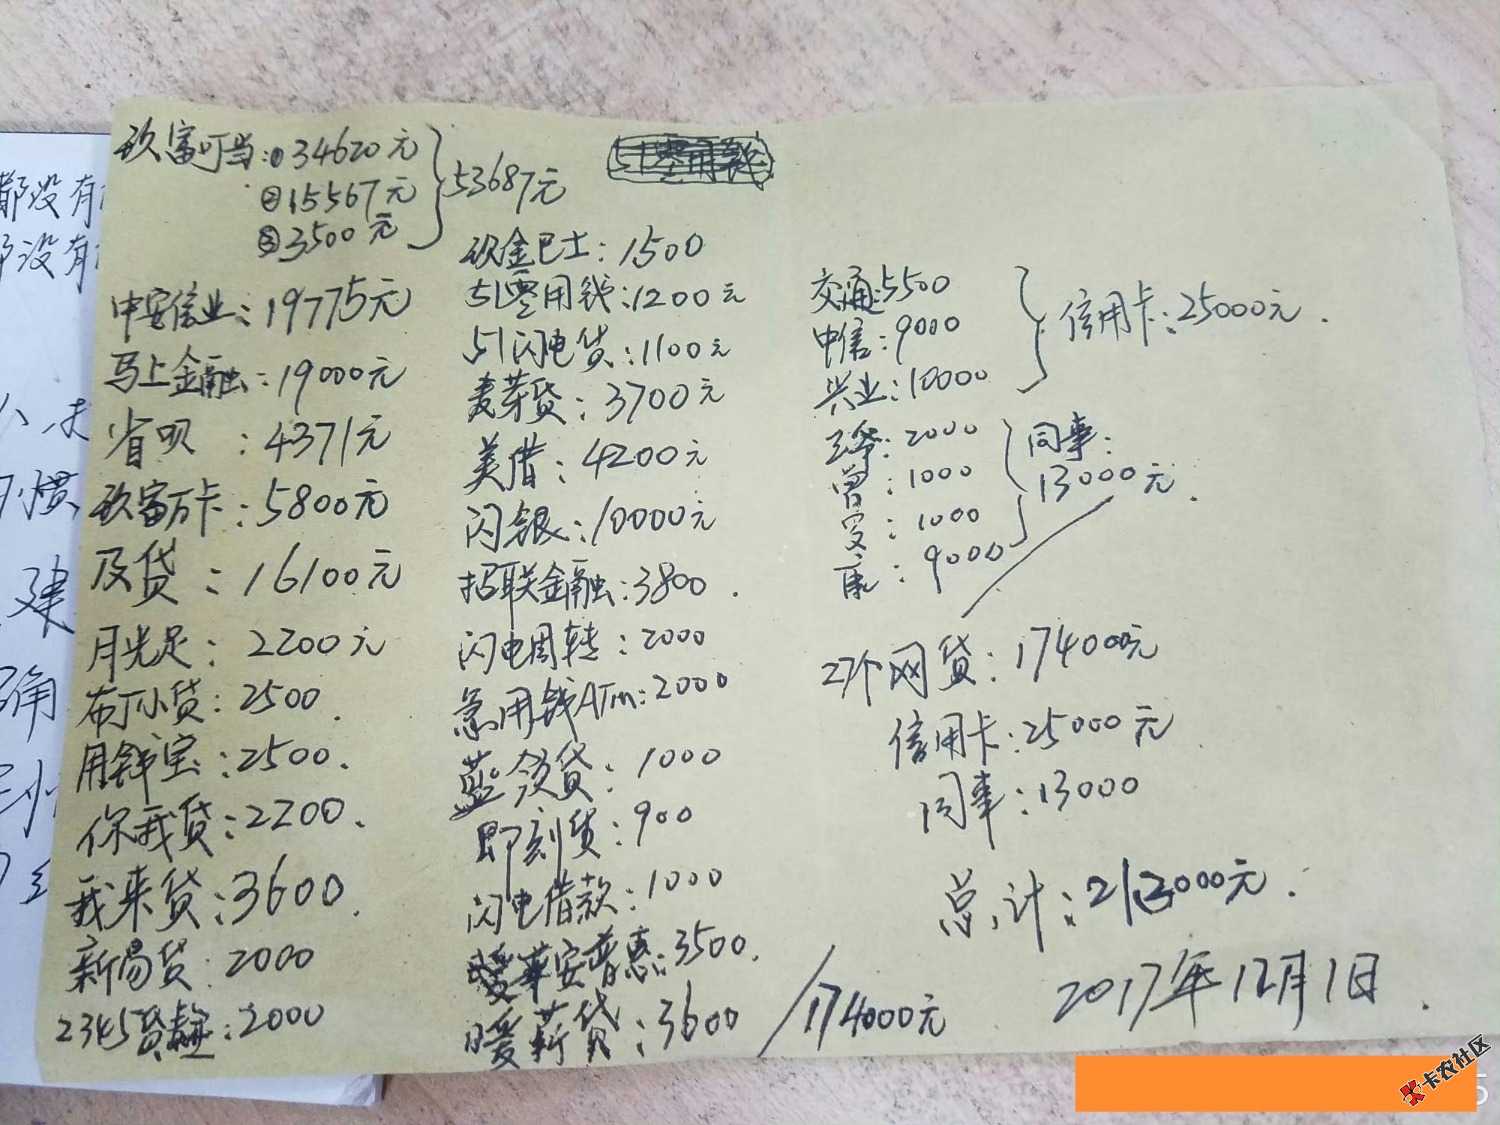 玖富叮当:①34620元
②15567元
③3500元
53687元
中安信业:19775元
马上金融:19000元
省呗:4371元
玖富万卡:5800元
及贷:16100元
月光足:2200元
布丁小贷:2500.
用钱宝:2500.
你我贷:2200.
我来贷:3600.
新易贷:2000
2345贷款:2000
51零用钱
玖金巴士:1500
51零用钱:1200元
51闪电贷:1100元
麦芽贷:3700元
美借:4200元
闪银:10000元
招联金融:3800.
闪电周转:2000
急用钱ATm:2000
蓝领贷:1000
即刻贷:900
闪电借款:1000
华安普惠:3500.
暖薪贷:3600
174000元
交通:5500
中信:9000
兴业:10000
信用卡:25000元.
:2000
曾:1000
:1000
:9000
同事:
13000元.
27个网贷:174000元
信用卡:25000元.
同事:13000
总计:212000元.
2017年12月1日.
都没有
都没有
惯
建
确
卡农社区
5